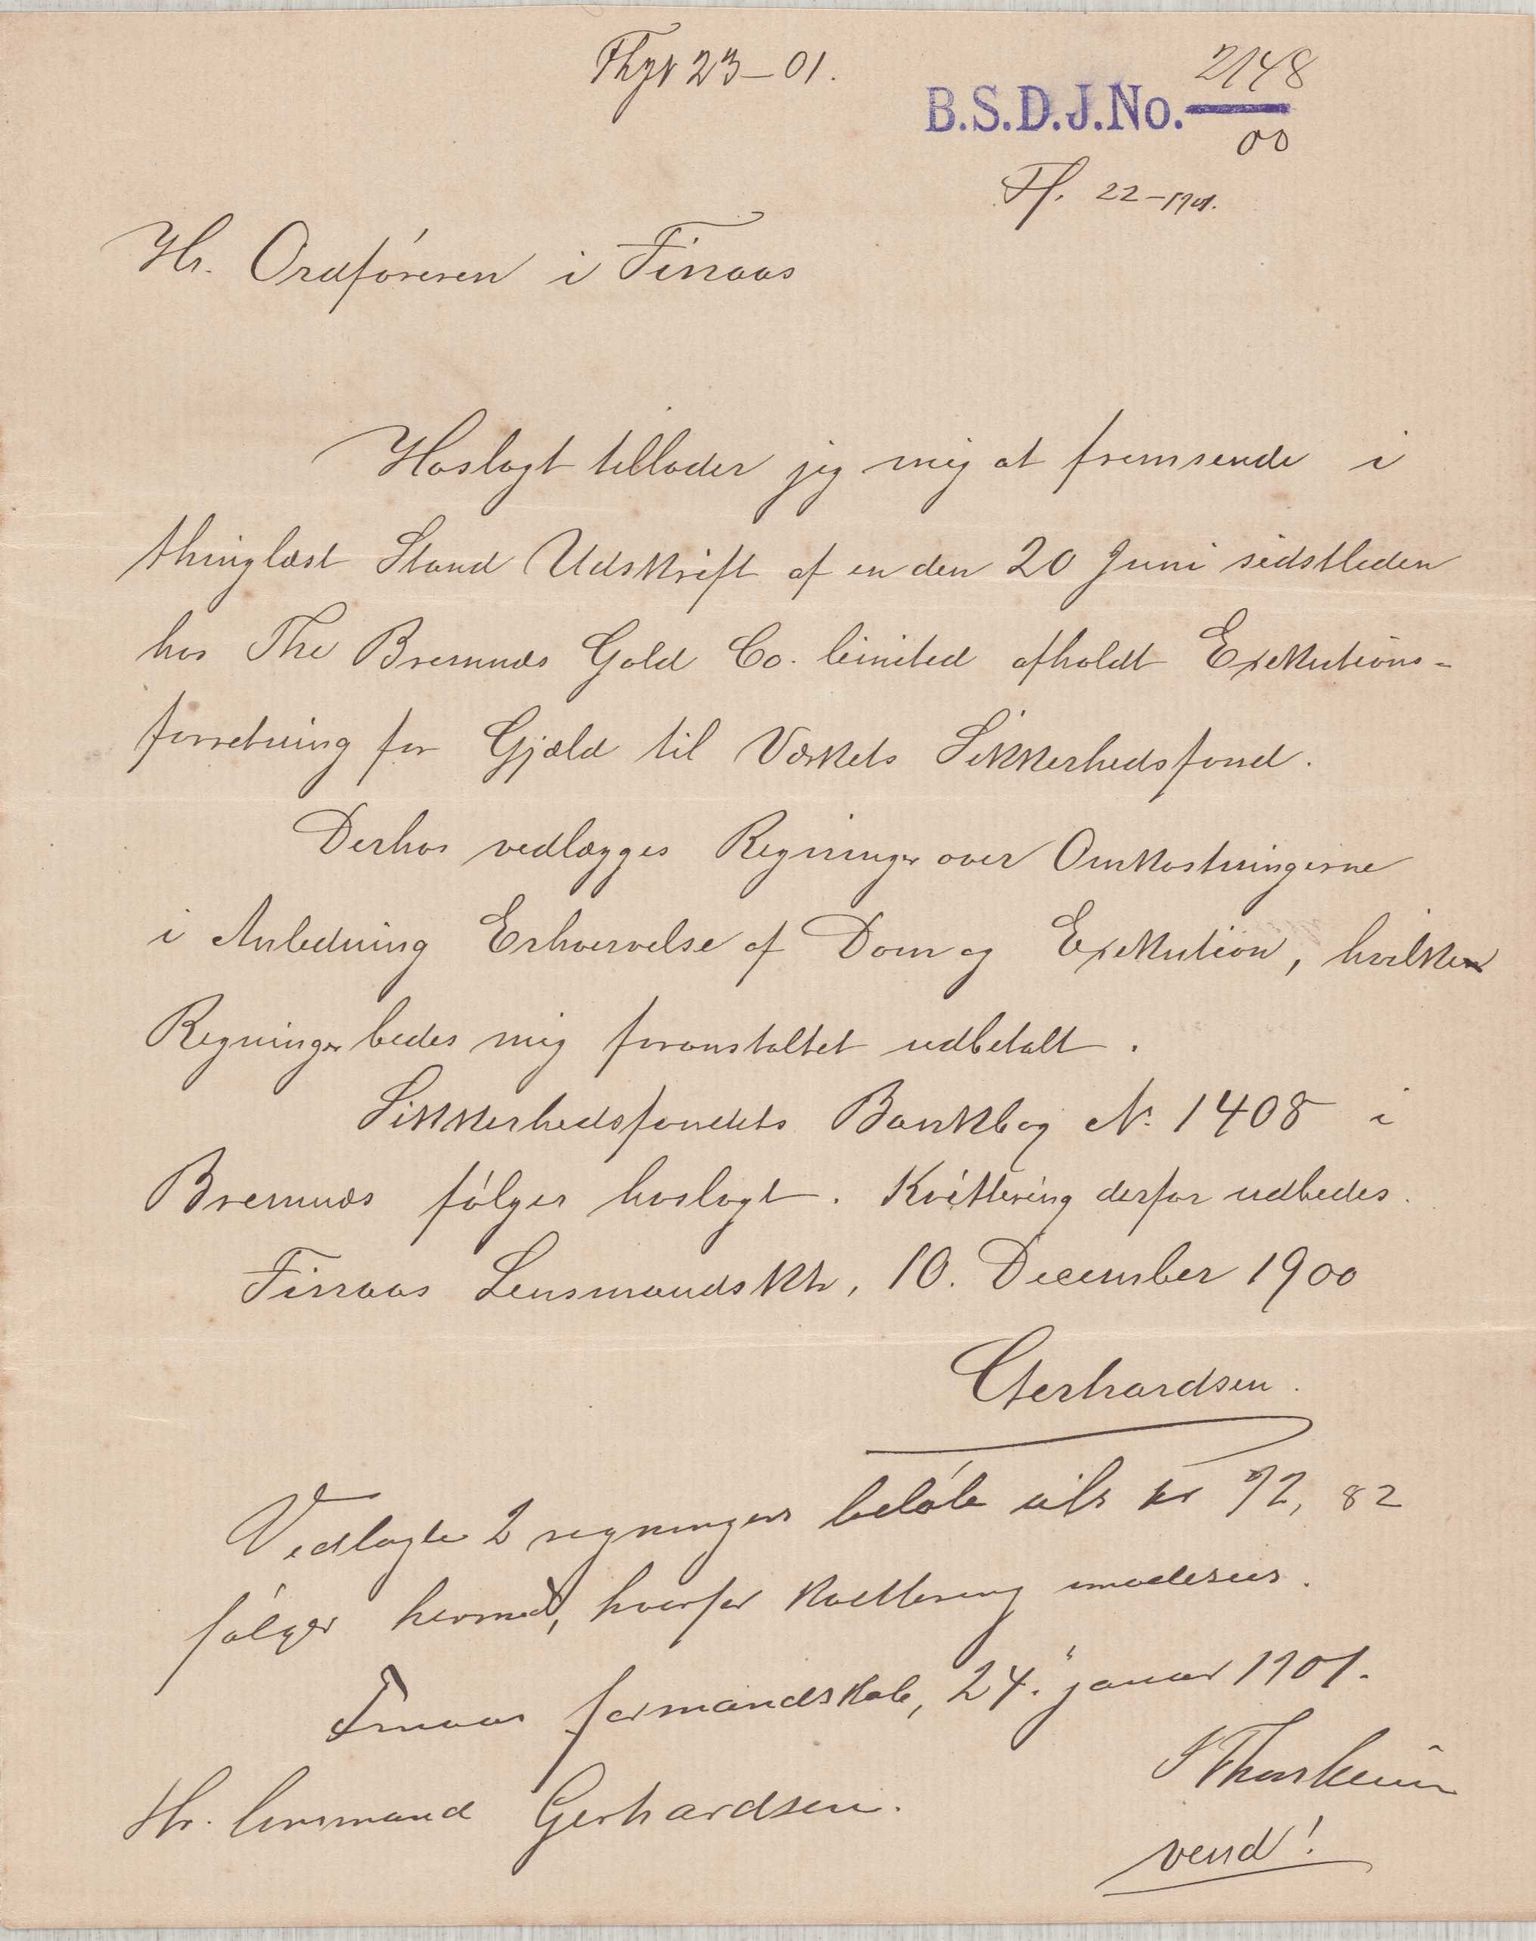 23-01.
2148
B.S.D.J.No.
00
Ff. 22-1901.
Hr. Ordføreren i Finaas
Hoslagt tillader jeg mig at fremsende i
thinglæst Stand Udskrift af en den 20 Juni sidstleden
hos The Bremnæs Gold Co. limited afholdt Exekutions-
forretning for Gjæld til Værkets Sikkerhedsfond.
Derhos vedlægges Regninger over Omkostningerne
i Anledning Erhvervelse af Dom og Exekution, hvilke
Regninger bedes mig foranstaltet udbetalt.
Sikkerhedsfondets Bankbog N. 1408 i
Bremnæs følger hoslagt. Kvittering derfor udbedes.
Finaas Lensmandskh, 10. December 1900
Gerhardsen.
Vedlagte 2 regningers beløb kr 72,82
følger hermed, hvorfor kvittering imødesees.
Finaas formandskab, 24. januar 1901.
Hr. lensmand Gerhardsen.
vend!